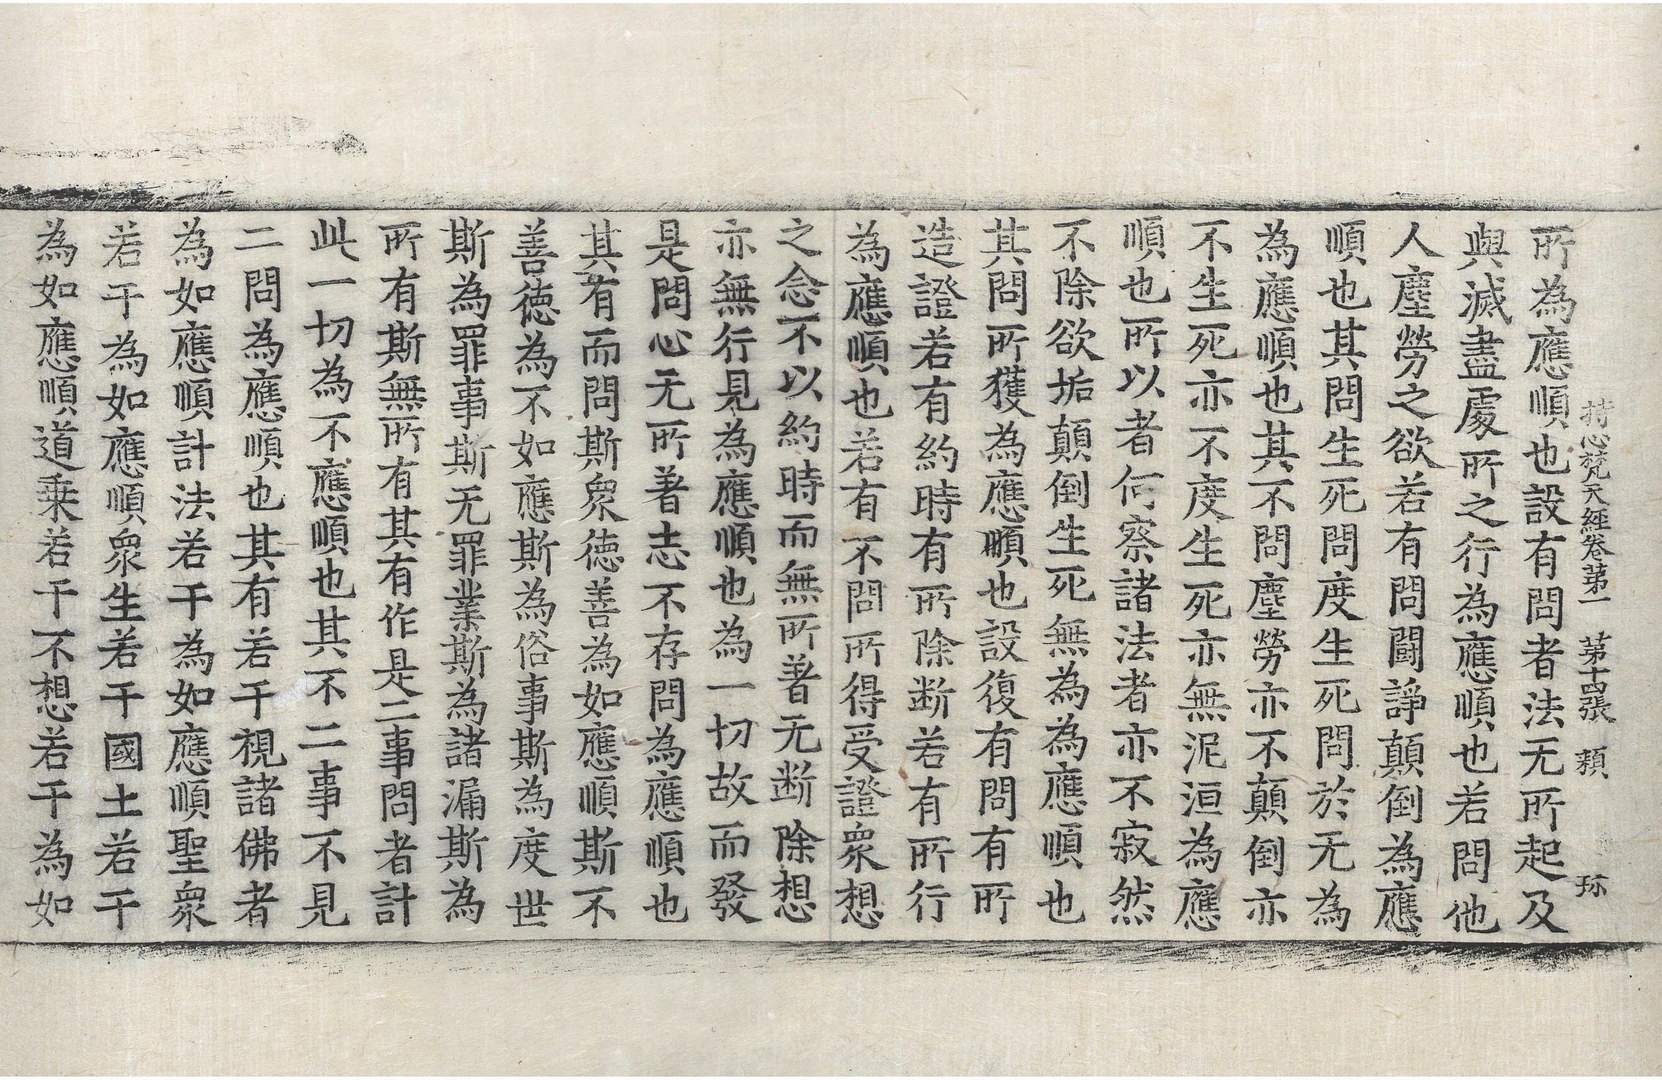 持心梵天經卷第一　第十四張　類　珎
所為應順也設有問者法无所起及
與滅盡處所之行為應順也若問他
人塵勞之欲若有問鬪諍顛倒為應
順也其問生死問度生死問於无為
為應順也其不問塵勞亦不顛倒亦
不生死亦不度生死亦無泥洹為應
順也所以者何察諸法者亦不寂然
不除欲垢顛倒生死無為為應順也
其問所獲為應順也設復有問有所
造證若有約時有所除断若有所行
為應順也若有不問所得受證衆想
之念不以約時而無所著无断除想
亦無行見為應順也為一切故而發
是問心无所著志不存問為應順也
其有而問斯衆徳善為如應順斯不
善徳為不如應斯為俗事斯為度世
斯為罪事斯无罪業斯為諸漏斯為
所有斯無所有其有作是二事問者計
此一切為不應順也其不二事不見
二問為應順也其有若干視諸佛者
為如應順計法若干為如應順聖衆
若干為如應順衆生若干國土若干
為如應順道乘若干不想若干為如